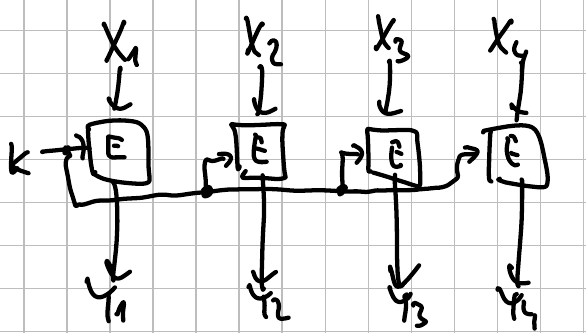 X1 X2 X3 X4
K E E E E
Y1 Y2 Y3 Y4